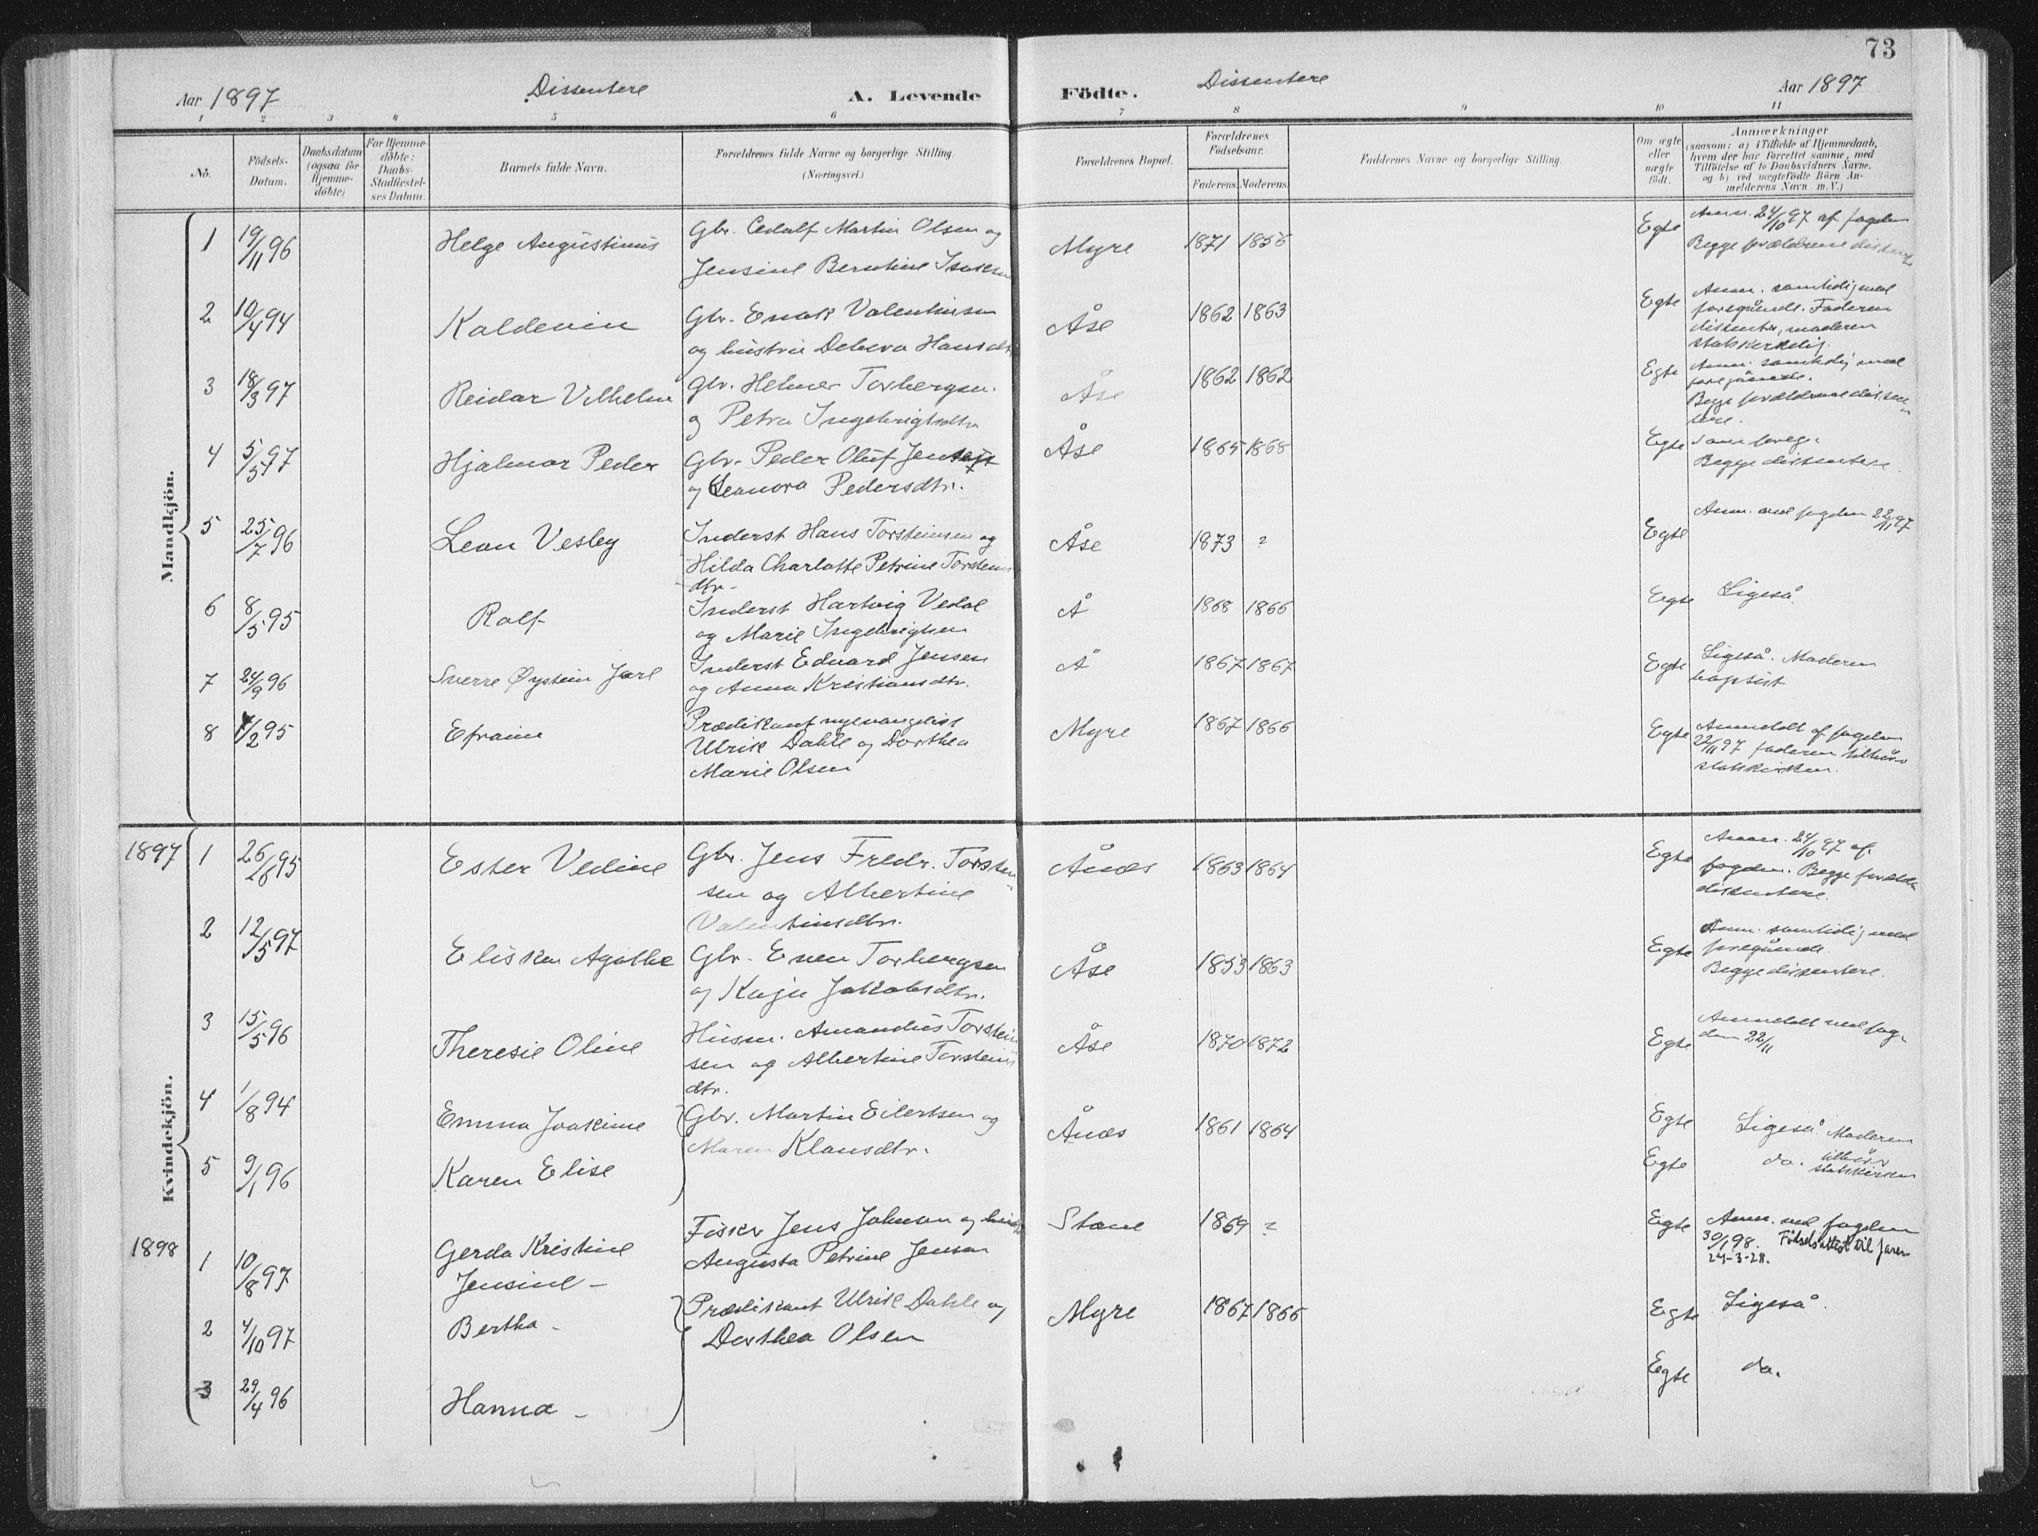 73
Aar 1897 Dissentere A. Levende Födte. Dissentere Aar 1897
1 2 3 4 5 6 7 8 9 10 11
No.
Födsels-Datum.
Daabsdatum (ogsaa for Hjemme-döbte)
For Hjemme-döbte: Daabs-Stadfæstel-ses Datum.
Barnets fulde Navn.
Forældrenes fulde Navne og borgerlige Stilling.
(Næringsvei.)
Forældrenes Bopæl.
Forældrenes Födselsaar.
Faderens. Moderens.
Faddernes Navne og borgerlige Stilling.
Om ægte eller uægte födt.
Anmærkninger
(saasom: a) i Tilfælde af Hjemmedaab,
hvem der har forrettet samme, med
Tilföielse af to Daabsvidners Navne.
og b) ved uægtefödte Börn An-
melderens Navn m. V.)
Mandkjön.
1 19/11 96 Helge Augustinus Gbr. Cedolf Martin Olsen og Myre 1871 1856 Egte Anm. 24/10 97 af fogden
Jensine Berntine Isaksen Begge forældrene dissent.
2 10/4 94 Kaldevin Gbr. Enok Valentinsen Åse 1862 1863 Egte Anm. samtidig med
og hustru Debora Hansdtr. foregående. Faderen
dissenter, moderen
statskirkelig.
3 18/3 97 Reidar Vilhelm Gbr. Helmer Torbergsen Åse 1862 1862 Egte Anm. samtidig med
og Petra Ingebrigtsdtr. foregående.
Begge forældrene dissen-
tere.
4 5/5 97 Hjalmar Peder Gbr. Peder Oluf Jensen Åse 1865 1868 Egte Som foreg.
og Leonora Pedersdtr. Begge dissentere.
5 25/7 96 Leon Vesley Inderst Hans Torsteinsen og Åse 1873 ? Egte Anm. ved fogden 22/11 97
Hilda Charlotte Petrine Torsteins
dtr.
6 8/5 95 Rolf Inderst Hartvig Vedal Å 1868 1866 Egte Ligeså.
og Marie Ingebrigtsen
7 24/9 96 Sverre Øystein Jarl Inderst Edvard Jensen Å 1867 1867 Egte Ligeså. Moderen
og Anna Kristiansdtr. baptist
8 1/2 95 Efraim Prædikant nyevangelist Myre 1867 1866 Egte Anmeldt af fogden
Ulrik Dahle og Dorthea 22/11 97 faderen tilhører
Marie Olsen statskirken.
Kvindekjön.
1897 1 26/6 95 Ester Vedine Gbr. Jens Fredr. Torstein- Ånes 1863 1864 Egte Anm. 24/10 97 af
sen og Albertine fogden. Begge foræld.
Valentinsdtr. dissentere.
2 12/5 97 Elisken Agathe Gbr. Even Torbergsen Åse 1853 1863 Egte Anm. samtidig med
og Kaja Jakobsdtr. foregående.
Begge dissentere.
3 15/5 96 Theresie Oline Husm. Amandus Torstein Åse 1870 1872 Egte Anmeldt ved fog-
sen og Albertine Torsteins den 22/11
dtr.
4 1/8 94 Emma Joakime Gbr. Martin Eilertsen og Ånes 1861 1864 Egte Ligeså Moderen
Maren Klausdtr. tilhører
5 9/1 96 Karen Elise Egte do. statskirken
1898 1 10/8 97 Gerda Kristine Fisker Jens Johnsen og hustru Stave 1869 ? Egte Anm. ved fogden
Jensine - Augusta Petrine Jensen 30/1 98. Fødselsattest til faren
24-3-28.
2 4/10 97 Bertha - Prædikant Ulrik Dahle og Myre 1867 1866 Egte Ligeså.
Dorthea Olsen
3 29/4 96 Hanna - Egte do.